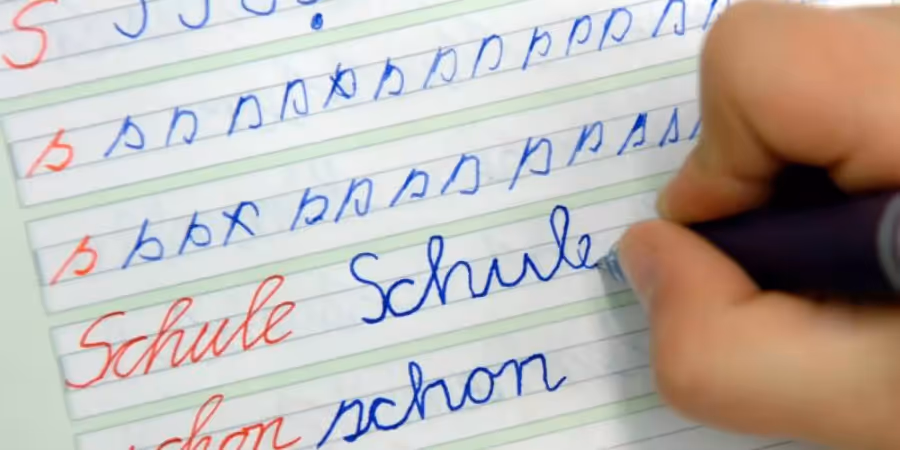 S
s s s s s s s s s s s s s
s s s s s s s s s s s s
Schule Schule
schon schon